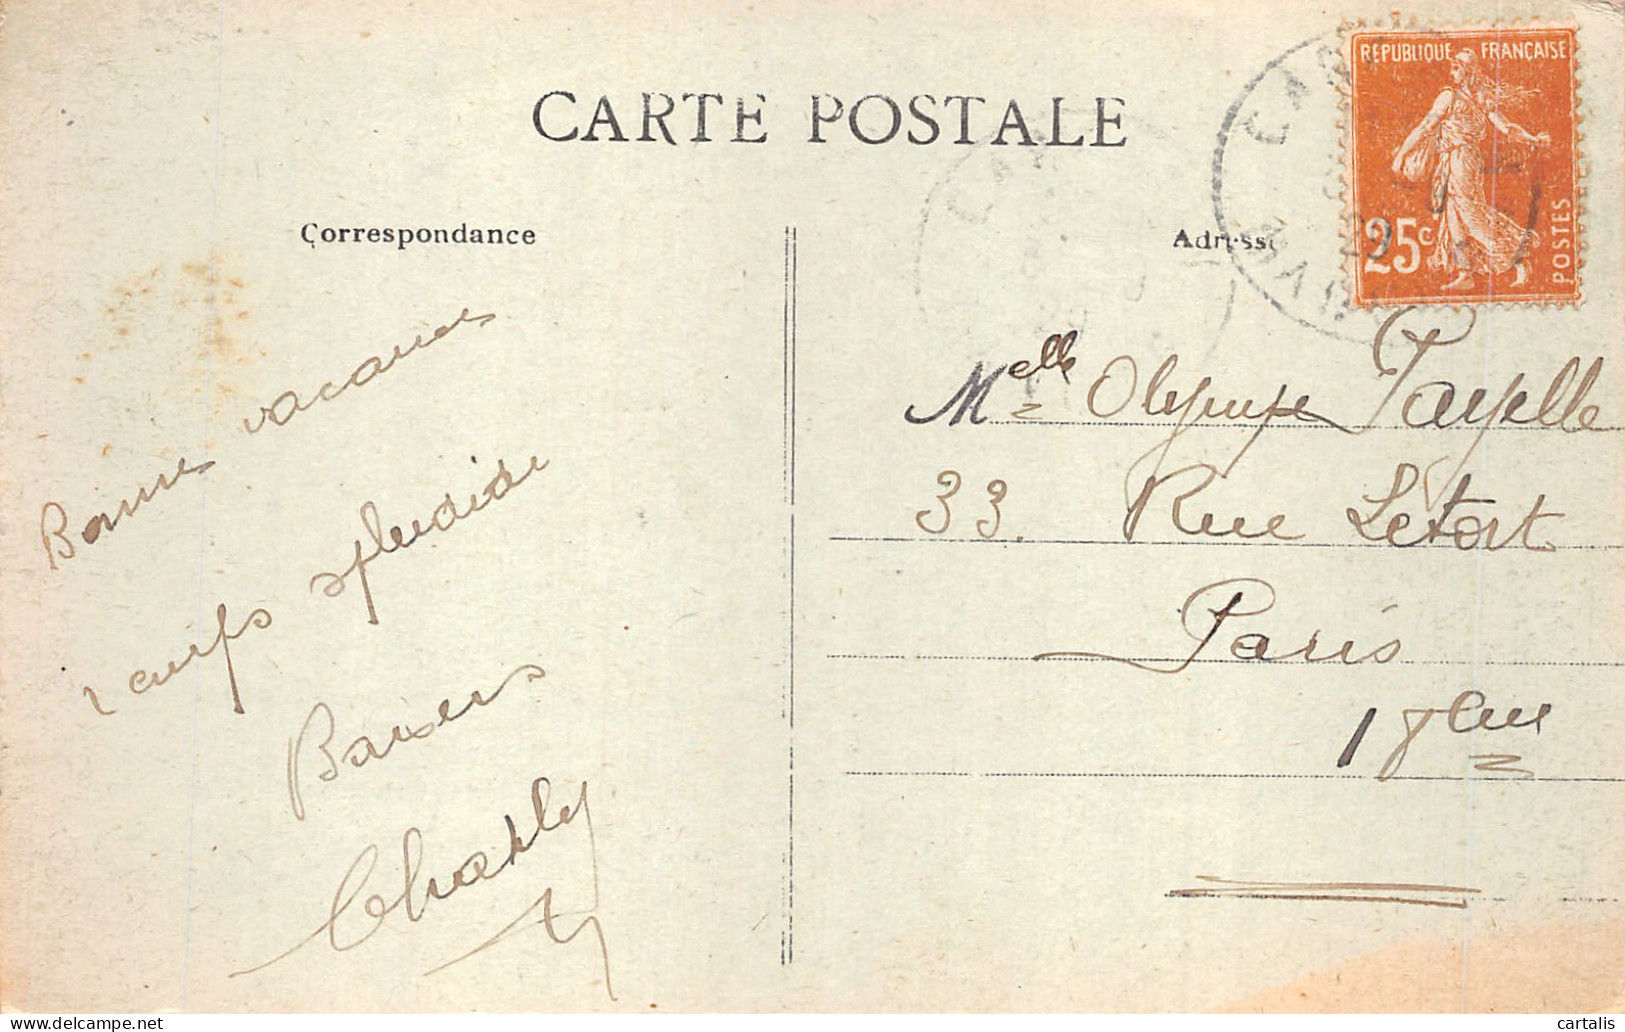 CARTE POSTALE
Correspondance
Bonnes vacances
Temps splendide
Baisers
Charley
Adresse
REPUBLIQUE FRANÇAISE
25c
POSTES
Melle Olympe Payelle
33. Rue Letort
Paris
18eme
cartalis